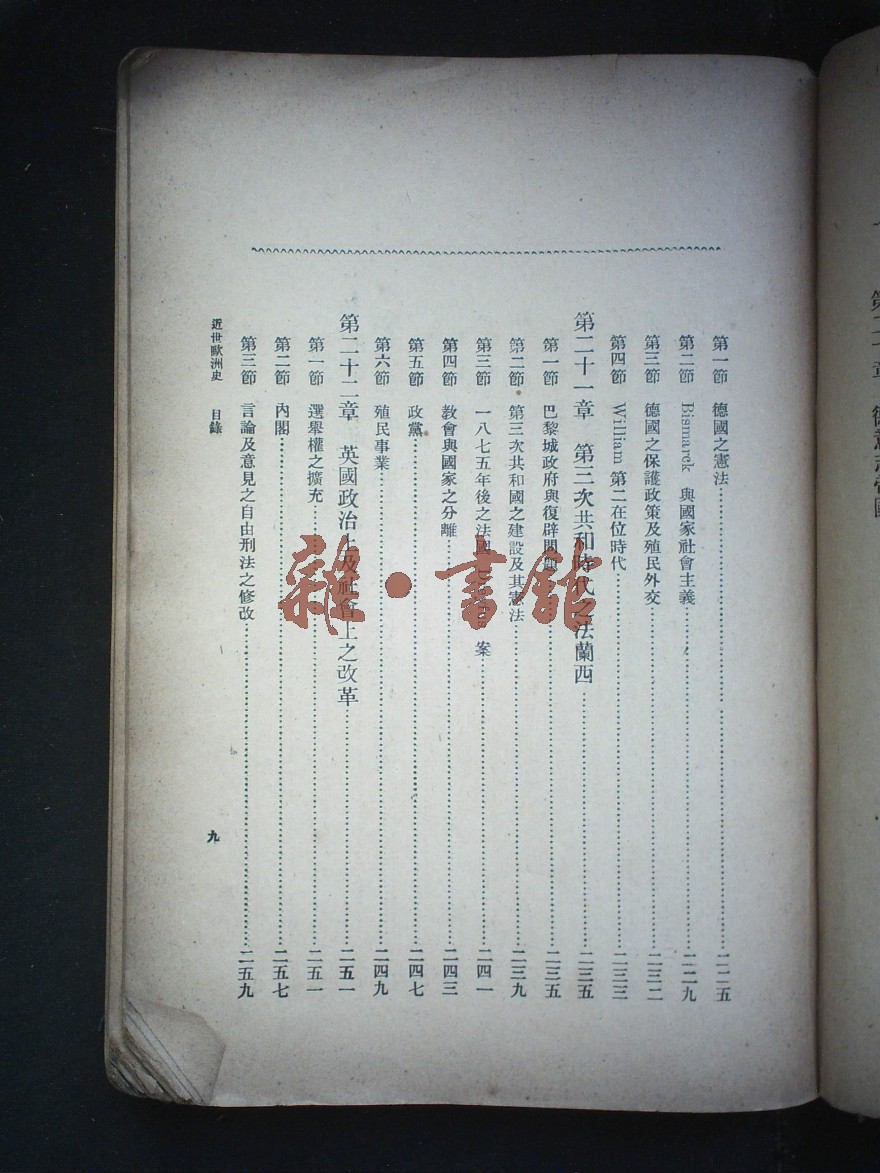 第一節 德國之憲法……二二五
第二節 Bismarck 與國家社會主義……二二九
第三節 德國之保護政策及殖民外交……二三二
第四節 William 第二在位時代……二三三
第二十一章 第三次共和時代之法蘭西……二三五
第一節 巴黎城政府與復辟問題……二三五
第二節 第三次共和國之建設及其憲法……二三九
第三節 一八七五年後之法國 案……二四一
第四節 教會與國家之分離……二四三
第五節 政黨……二四七
第六節 殖民事業……二四九
第二十二章 英國政治上及社會上之改革……二五一
第一節 選舉權之擴充……二五一
第二節 內閣……二五七
第三節 言論及意見之自由刑法之修改……二五九
近世歐洲史 目錄
九
雜·書館